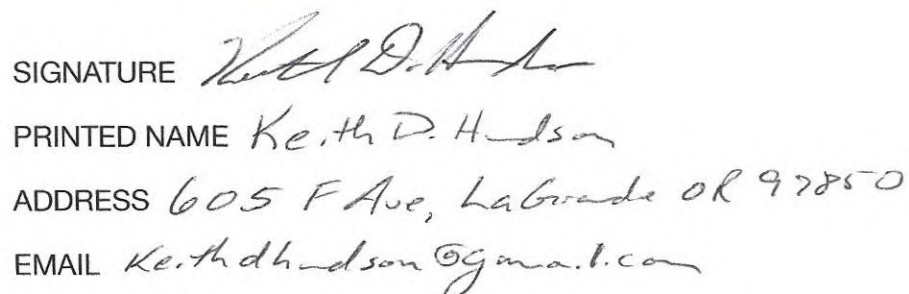 SIGNATURE Keith D. Hudson
PRINTED NAME Keith D. Hudson
ADDRESS 605 F Ave, LaGrande OR 97850
EMAIL Keithdhudson@gmail.com